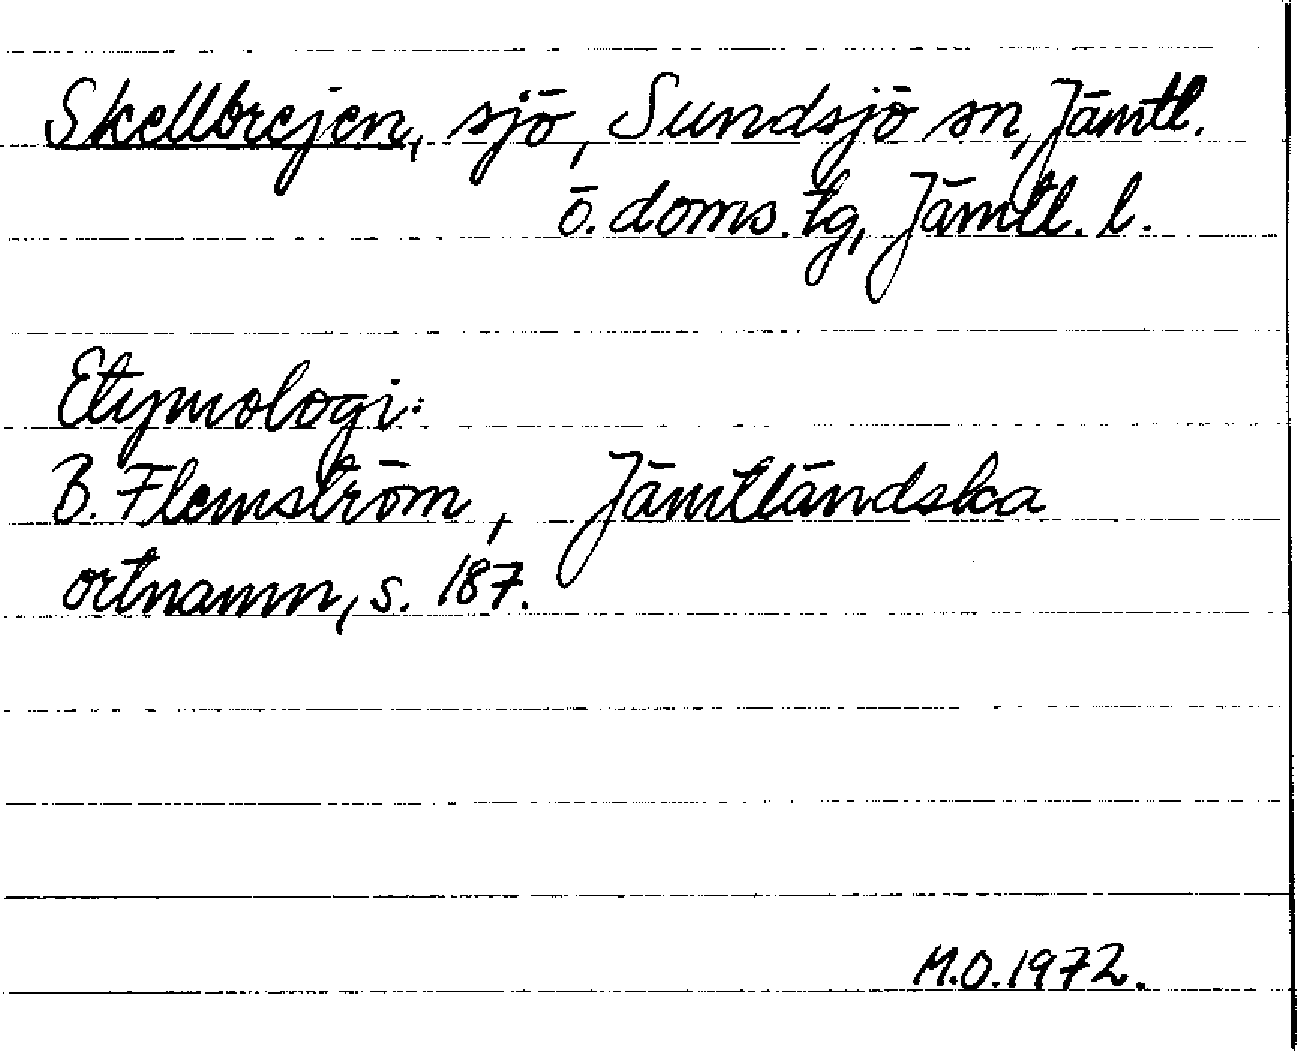 Skellbrejen, sjö, Sundsjö sn, Jämtl.
ö. doms. tg, Jämtl. l.
Etymologi:
B. Flemström, Jämtländska
ortnamn, s. 187.
M.O. 1972.